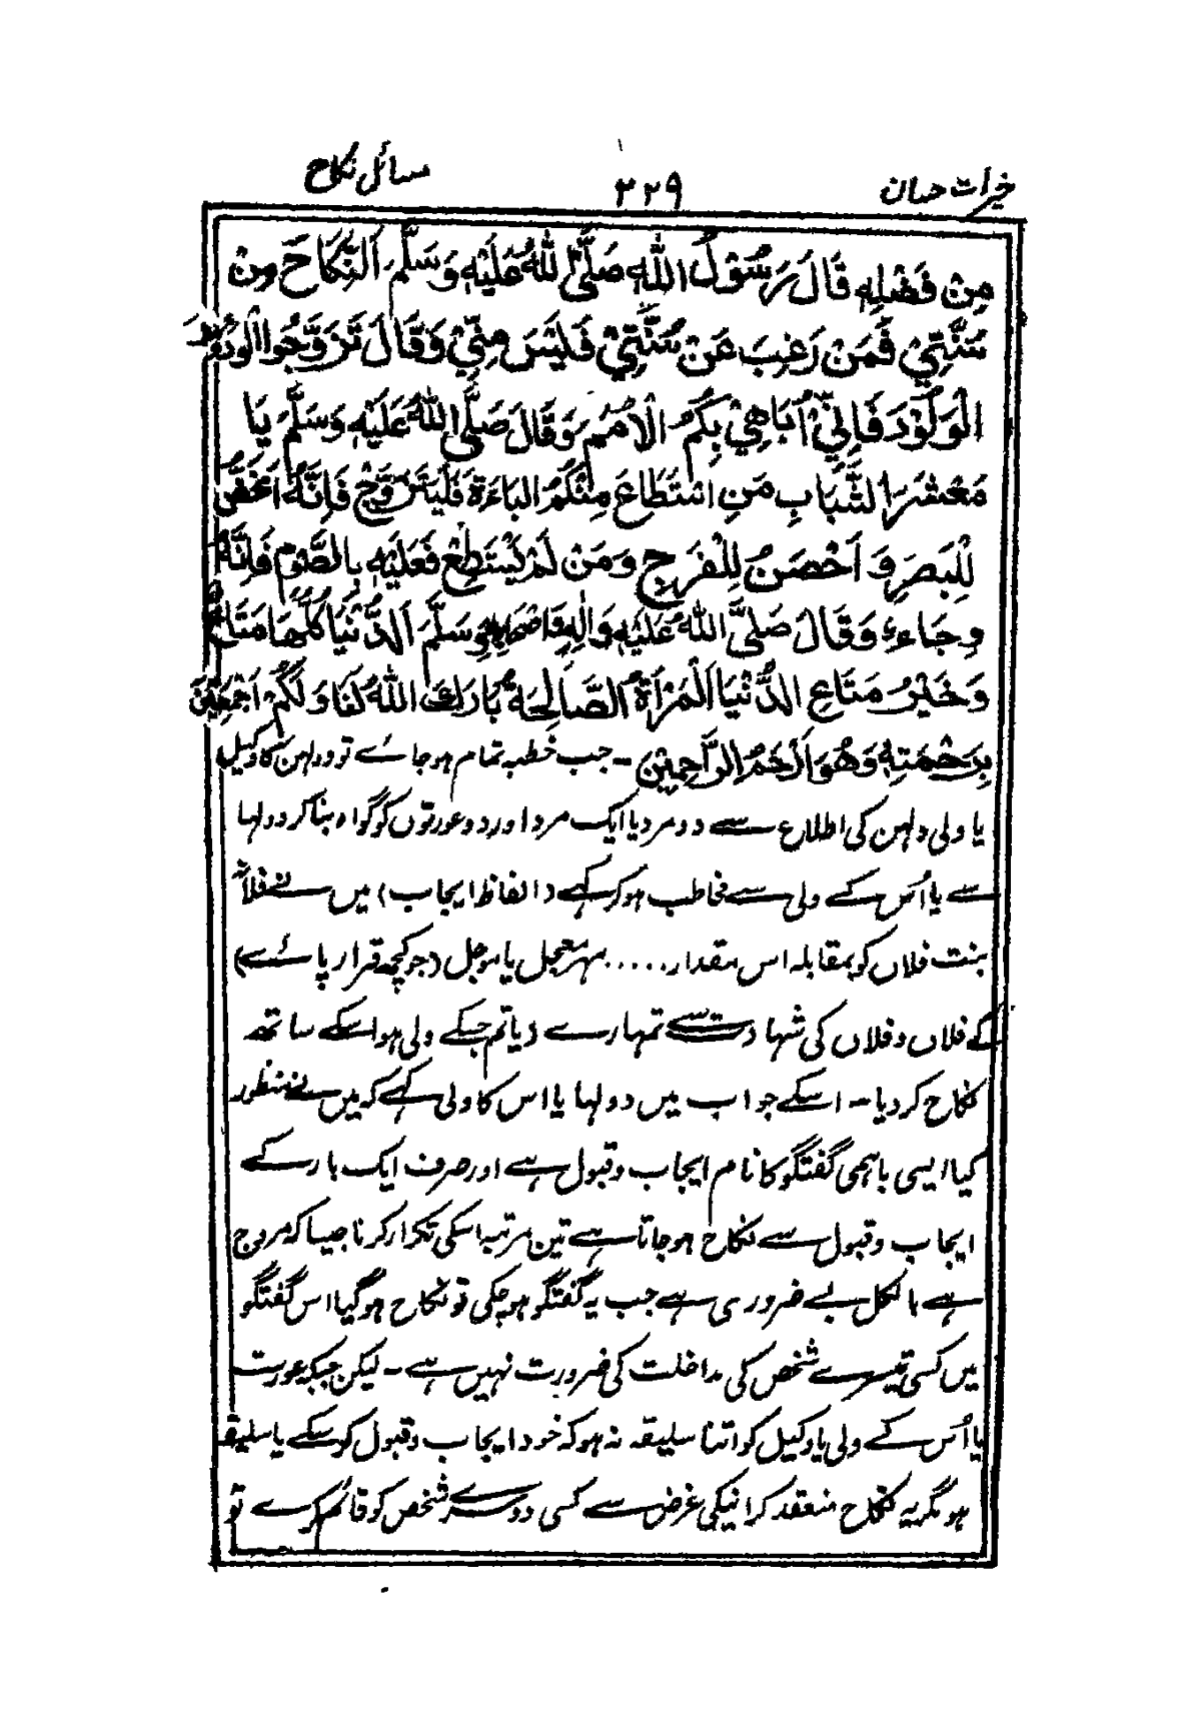 خیرات حسان ۳۲۹ مسائل نکاح
مِنْ فَضْلِهٖ قَالَ رَسُوْلُ اللّٰهِ صَلَّى اللّٰهُ عَلَيْهِ وَسَلَّمَ اَلنِّكَاحَ مِنْ
سُنَّتِيْ فَمَنْ رَغِبَ عَنْ سُنَّتِيْ فَلَيْسَ مِنِّيْ وَقَالَ تَزَوَّجُوا الْوَدُوْدَ
الْوَلُوْدَ فَاِنِّيْ اُبَاهِيْ بِكُمُ الْاُمَمَ وَقَالَ صَلَّى اللّٰهُ عَلَيْهِ وَسَلَّمَ يَا
مَعْشَرَ الشَّبَابِ مَنِ اسْتَطَاعَ مِنْكُمُ الْبَاءَةَ فَلْيَتَزَوَّجْ فَاِنَّهٗ اَغَضُّ
لِلْبَصَرِ وَ اَحْصَنُ لِلْفَرَجِ وَمَنْ لَمْ يَسْتَطِعْ فَعَلَيْهِ بِالصَّوْمِ فَاِنَّهٗ
وِجَاءٌ وَقَالَ صَلَّى اللّٰهُ عَلَيْهِ وَاٰلِهٖ وَاَصْحَابِهٖ وَسَلَّمَ اَلدُّنْيَا كُلُّهَا مَتَاعٌ
وَخَيْرُ مَتَاعِ الدُّنْيَا اَلْمَرْأَةُ الصَّالِحَةُ بَارَكَ اللّٰهُ لَنَا وَلَكُمْ اَجْمَعِيْنَ
بِرَحْمَتِهٖ وَهُوَ اَرْحَمُ الرَّاحِمِيْنَ ۔ جب خطبہ تمام ہو جائے تو دولہن کا وکیل
یا ولی دلہن کی اطلاع سے دو مرد یا ایک مرد اور دو عورتوں کو گواہ بنا کر دولہا
سے یا اُس کے ولی سے مخاطب ہو کر کہے (الفاظ ایجاب) میں نے فلاں
بنت فلاں کو بمقابلہ اس مقدار ..... مہر معجل یا موجل (جو کچھ قرار پائے)
کے فلاں و فلاں کی شہادت سے تمہارے (یا تم جسکے ولی ہو اسکے ساتھ
نکاح کر دیا ۔ اسکے جواب میں دولہا یا اس کا ولی کہے کہ میں نے منظور
کیا ایسی باہمی گفتگو کا نام ایجاب و قبول ہے اور صرف ایک بار کے
ایجاب و قبول سے نکاح ہو جاتا ہے تین مرتبہ اسکی تکرار کرنا جیسا کہ مروج
ہے بالکل بے ضروری ہے جب یہ گفتگو ہو چکی تو نکاح ہو گیا اس گفتگو
میں کسی تیسرے شخص کی مداخلت کی ضرورت نہیں ہے ۔ لیکن جبکہ عورت
یا اُس کے ولی یا وکیل کو اتنا سلیقہ نہ ہو کہ خود ایجاب و قبول کر سکے یا سلیقہ
ہو مگر یہ نکاح منعقد کرانیکی غرض سے کسی دوسرے شخص کو قائم کرے تو